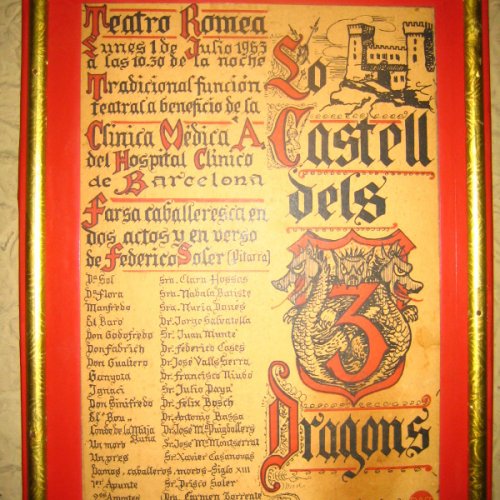 Teatro Romea
Lunes 1 de Julio 1963
a las 10.30 de la noche
Tradicional función
teatral a beneficio de la
Clinica Médica "A"
del Hospital Clínico
de Barcelona
Farsa caballeresca en
dos actos y en verso
de Federico Soler (Pitarra)
Dª Sol Sra. Clara Hossas
Dª Flora Sra. Mabala Batiste
Manfredo Sra. Nuria Danés
El Baró Dr. Jorge Salvatella
Don Godofredo Sr. Juan Munté
Don Fadrich Dr. Federico Casés
Don Gualtero Dr. José Valls Serra
Ganyoza Dr. Francisco Riubó
Ignaci Sr. Julio Payá
Don Sinifredo Dr. Felix Bosch
El "Bou" Dr. Antonio Bassa
Conde de la Mitja Lluna Dr. José Mª Puigdollers
Un moro Sr. José Mª Montserrat
Un pres Sr. Xavier Casanovas
Damas, caballeros, moros - Siglo XIII
1er Apunte Sr. Prisco Soler
2º Apuntes Dra. Carmen Torrente
Lo
Castell
dels
3
Dragons